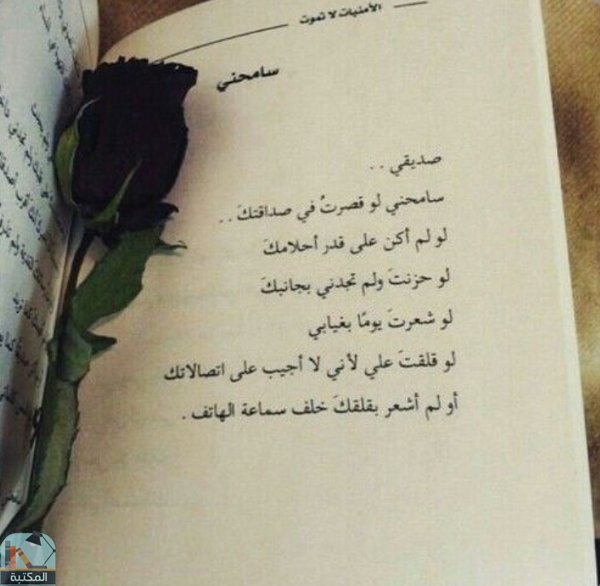 الأمنيات لا تموت
سامحني
صديقي . .
سامحني لو قصرتُ في صداقتكَ . .
لو لم أكن على قدر أحلامكَ
لو حزنتَ ولم تجدني بجانبكَ
لو شعرتَ يومًا بغيابي
لو قلقتَ علي لأني لا أجيب على اتصالاتك
أو لم أشعر بقلقكَ خلف سماعة الهاتف .
المكتبة